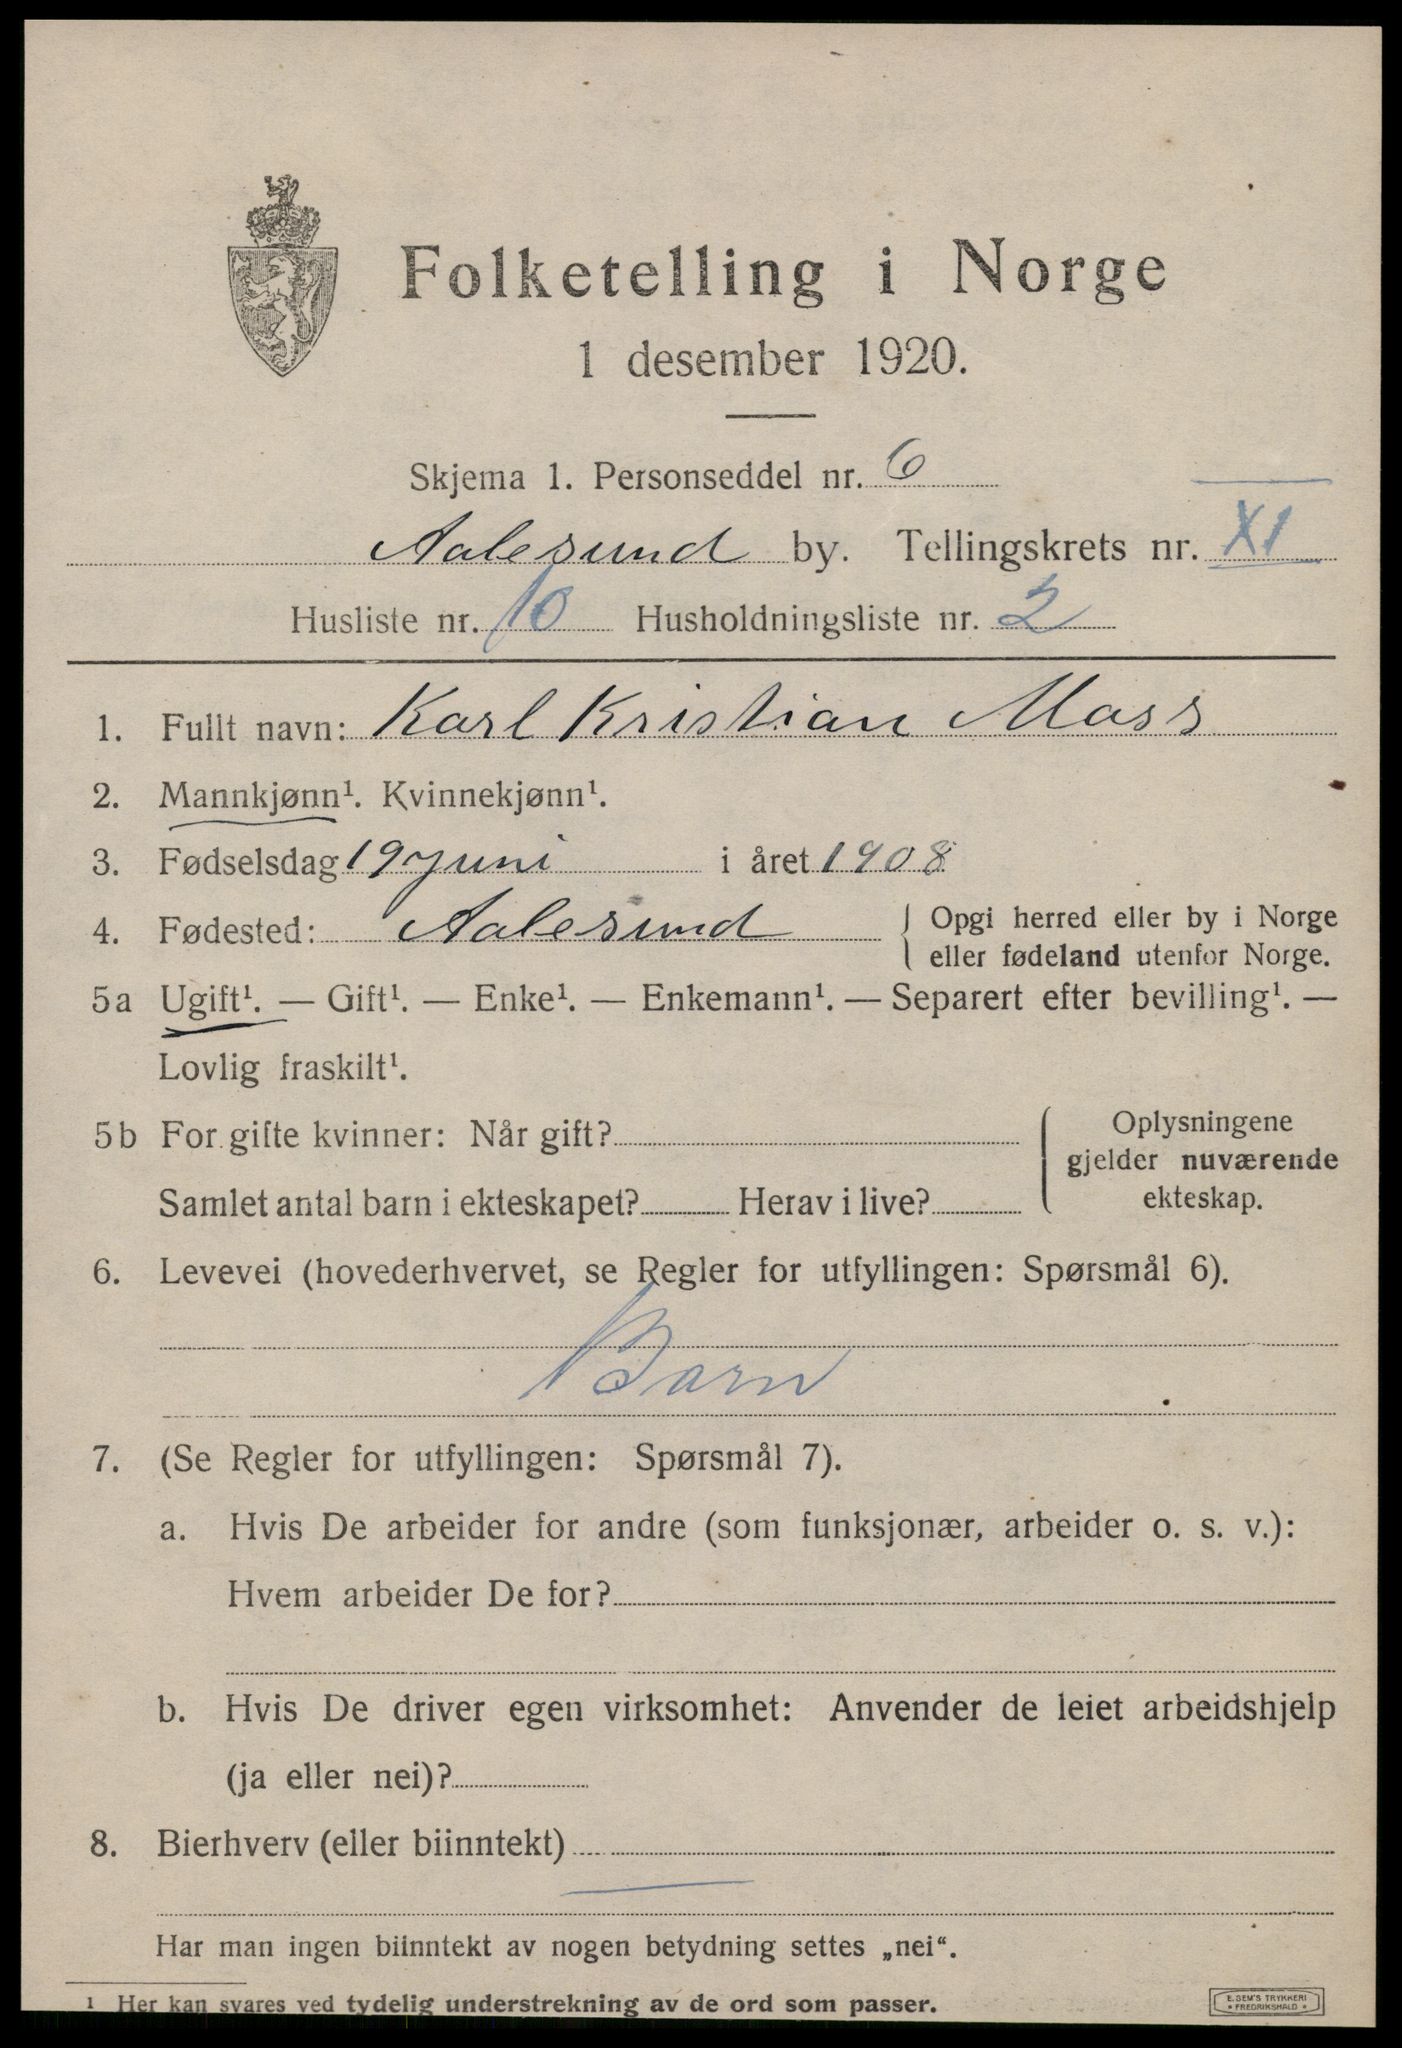 Folketelling i Norge
1 desember 1920.
Skjema 1. Personseddel nr. 6
Aalesund by. Tellingskrets nr. XI
Husliste nr. 10 Husholdningsliste nr. 2
1. Fullt navn: Karl Kristian Mass
2. Mannkjønn¹. Kvinnekjønn¹.
3. Fødselsdag 19 juni i året 1908
4. Fødested: Aalesund { Opgi herred eller by i Norge
eller fødeland utenfor Norge.
5a Ugift¹. — Gift¹. — Enke¹. — Enkemann¹. — Separert efter bevilling¹. —
Lovlig fraskilt¹.
5b For gifte kvinner: Når gift? { Oplysningene
gjelder nuværende
Samlet antal barn i ekteskapet? Herav i live? ekteskap.
6. Levevei (hovederhvervet, se Regler for utfyllingen: Spørsmål 6).
Barn
7. (Se Regler for utfyllingen: Spørsmål 7).
a. Hvis De arbeider for andre (som funksjonær, arbeider o. s. v.):
Hvem arbeider De for?
b. Hvis De driver egen virksomhet: Anvender de leiet arbeidshjelp
(ja eller nei)?
8. Bierhverv (eller biinntekt)
Har man ingen biinntekt av nogen betydning settes „nei“.
¹ Her kan svares ved tydelig understrekning av de ord som passer.
E. SEM'S TRYKKERI
* FREDRIKSHALD *